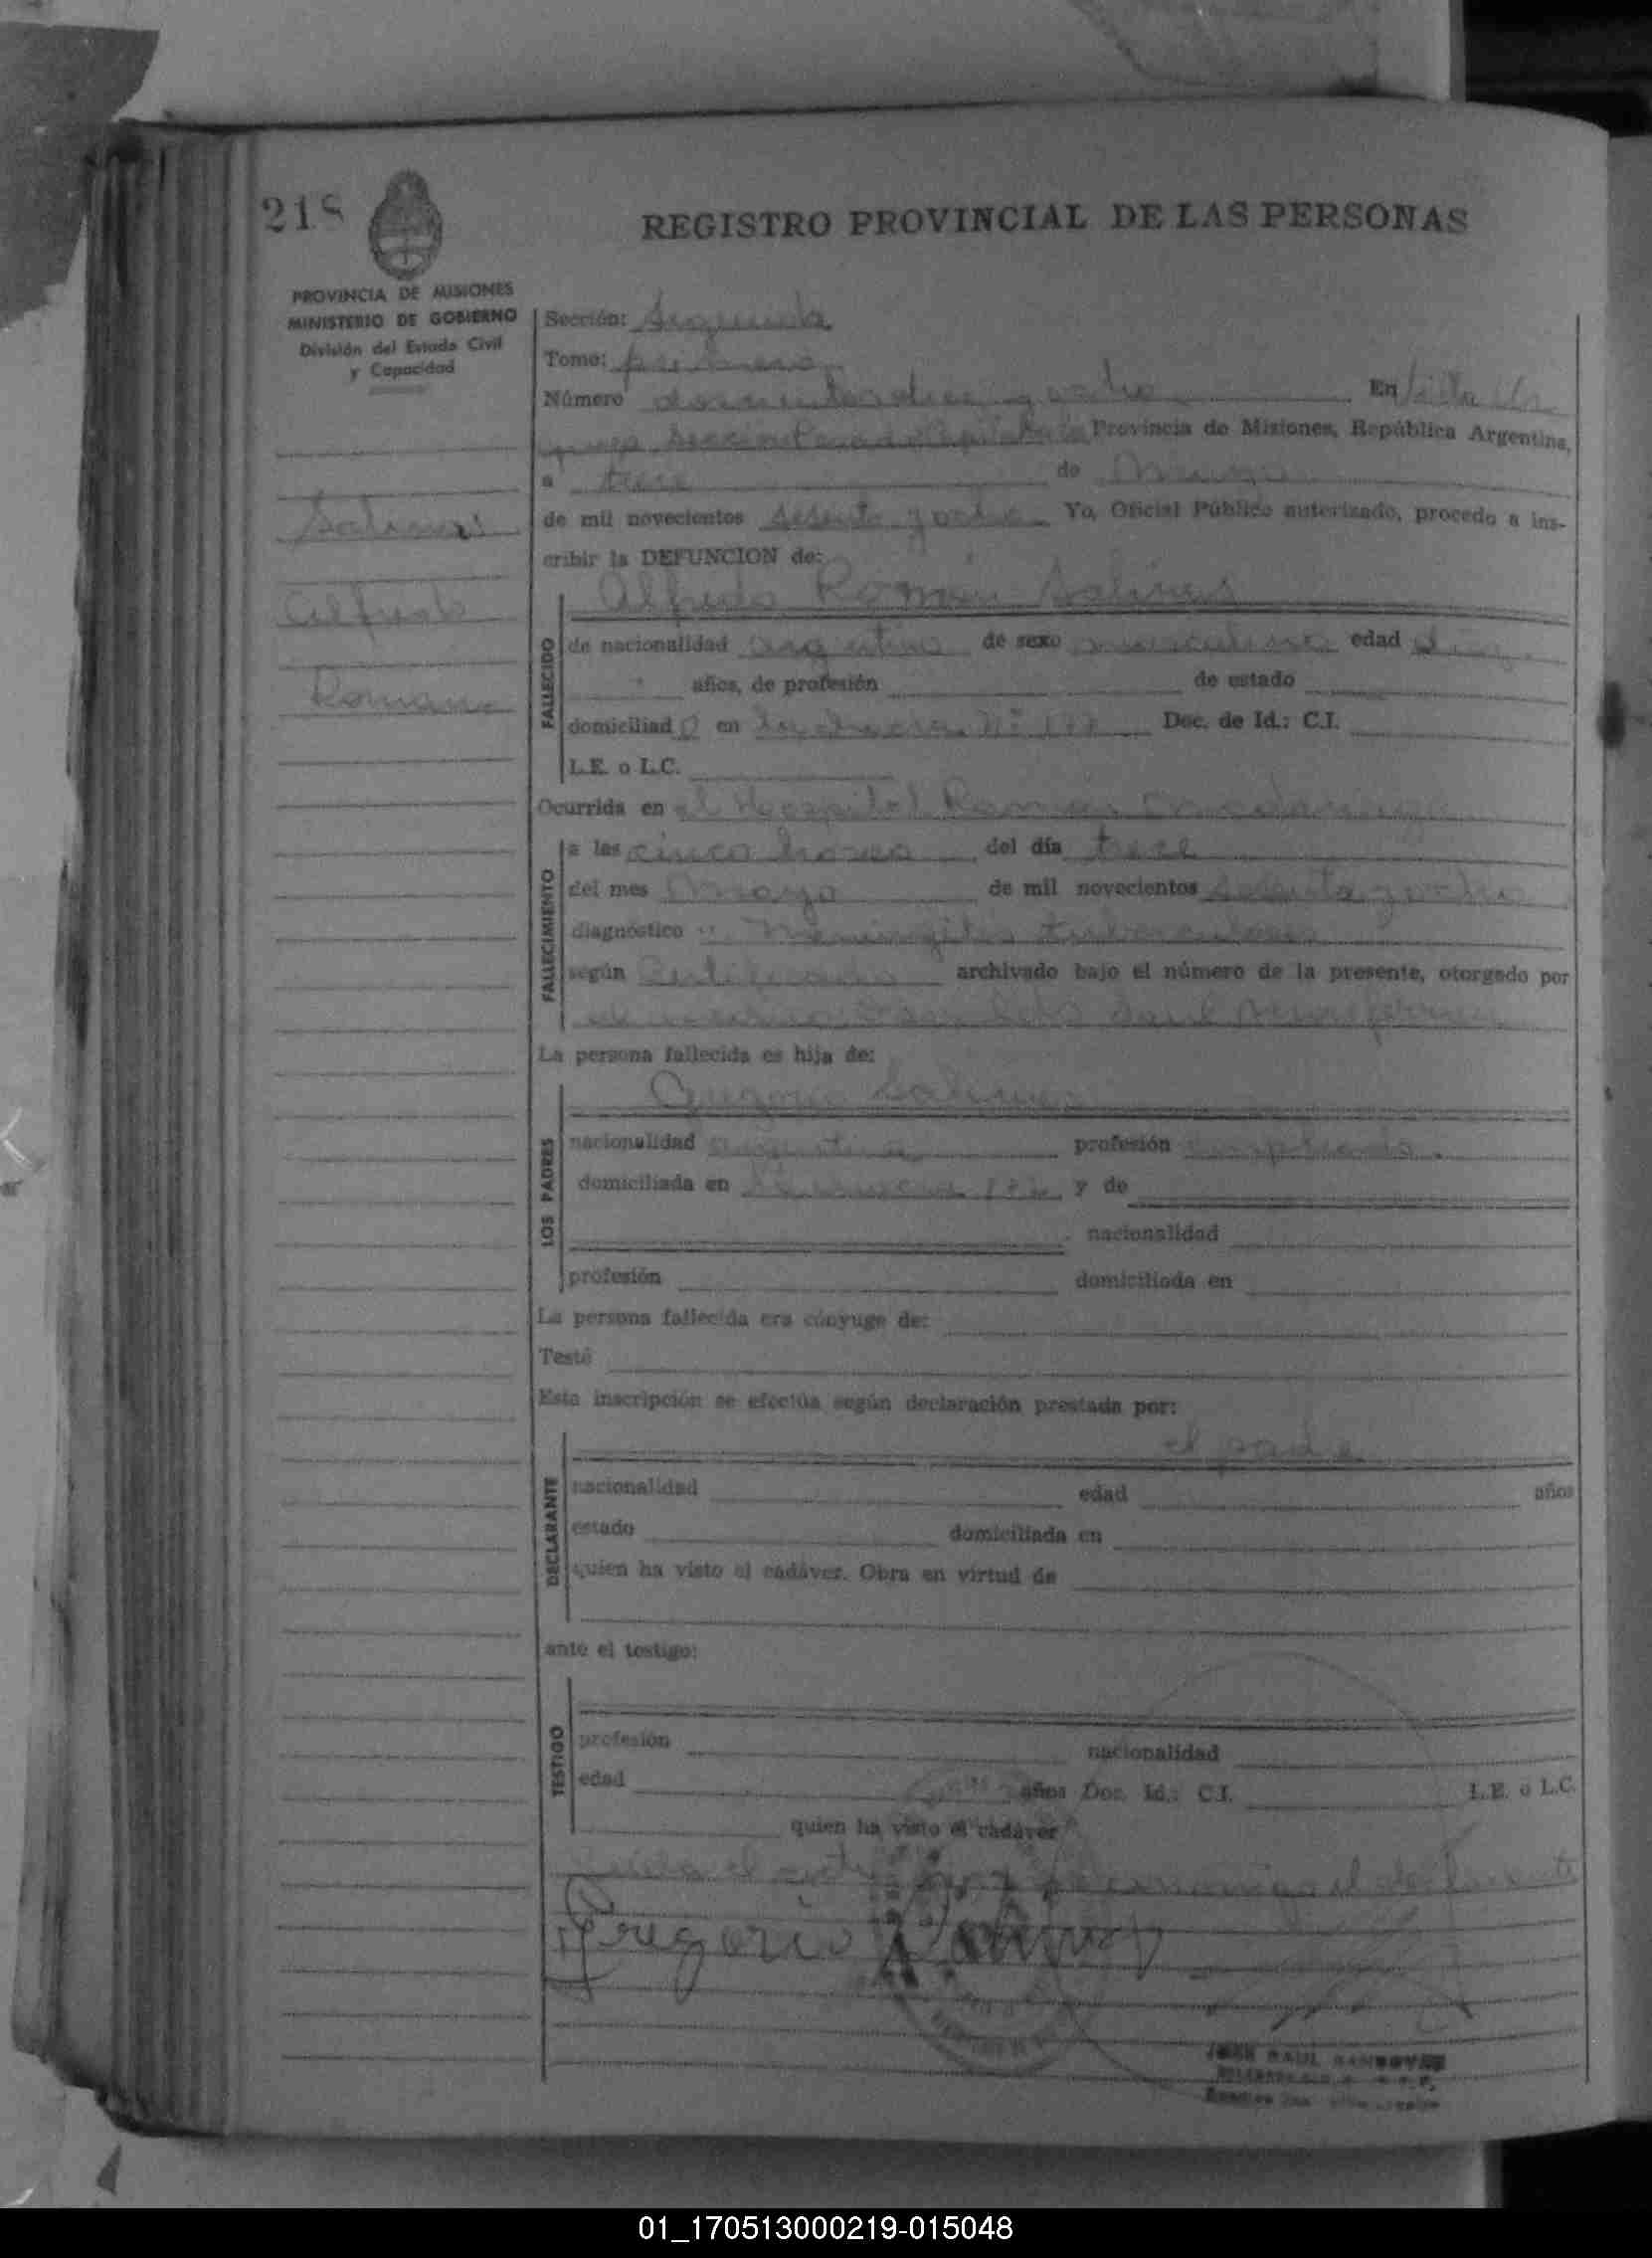 218
REGISTRO PROVINCIAL DE LAS PERSONAS
PROVINCIA DE MISIONES
MINISTERIO DE GOBIERNO
División del Estado Civil
y Capacidad
Salinas
Alfredo
Roman
Sección: Segunda
Tomo: primero
Número doscientos diez y ocho En Villa Ur
quiza Sección Capital Provincia de Misiones, República Argentina,
a trece de Mayo
de mil novecientos sesenta y ocho Yo, Oficial Público autorizado, procedo a ins-
cribir la DEFUNCION de:
Alfredo Román Salinas
FALLECIDO
de nacionalidad argentina de sexo masculino edad
años, de profesión de estado
domiciliado en Doc. de Id.: C.I.
L.E. o L.C.
Ocurrida en el Hospital Ramon Madariaga
FALLECIMIENTO
a las cinco horas del día trece
del mes Mayo de mil novecientos sesenta y ocho
diagnóstico Meningitis tuberculosa
según Certificado archivado bajo el número de la presente, otorgado por
La persona fallecida es hija de:
Gregorio Salinas
LOS PADRES
nacionalidad argentina profesión empleado.
domiciliada en y de
nacionalidad
profesión domiciliada en
La persona fallecida era cónyuge de:
Testó
Esta inscripción se efectúa según declaración prestada por:
el padre
DECLARANTE
nacionalidad edad años
estado domiciliada en
quien ha visto el cadáver. Obra en virtud de
ante el testigo:
TESTIGO
profesión nacionalidad
edad años Doc. Id.: C.I. L.E. o L.C.
quien ha visto el cadáver
Leída el acta firma el declarante
Gregorio Salinas
JOSE RAUL SANDOVAL
01_170513000219-015048